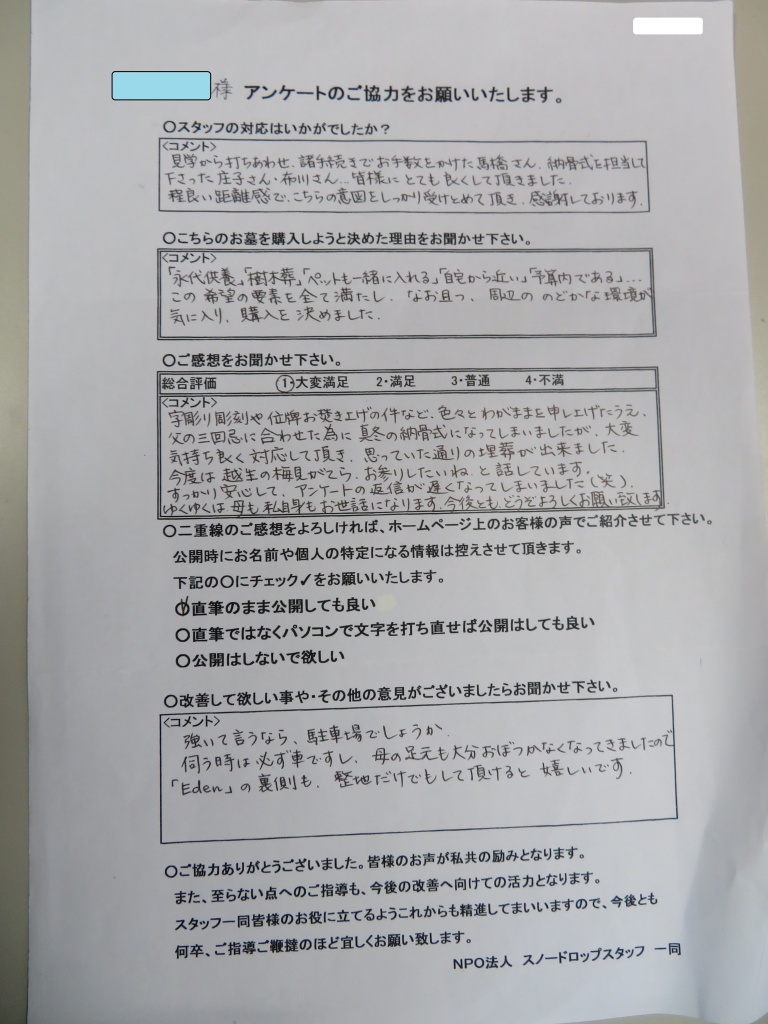 様 アンケートのご協力をお願いいたします。
〇スタッフの対応はいかがでしたか?
<コメント>
見学から打ちあわせ、諸手続きでお手数をかけた馬橋さん、納骨式を担当して
下さった庄子さん・布川さん…皆様にとても良くして頂きました。
程良い距離感で、こちらの意図をしっかり受けとめて頂き、感謝しております。
〇こちらのお墓を購入しようと決めた理由をお聞かせ下さい。
<コメント>
「永代供養」「樹木葬」「ペットも一緒に入れる」「自宅から近い」「予算内である」…
この希望の要素を全て満たし、なお且つ、周辺の のどかな環境が
気に入り、購入を決めました。
〇ご感想をお聞かせ下さい。
総合評価 ①・大変満足 2・満足 3・普通 4・不満
<コメント>
字彫り彫刻や位牌お焚き上げの件など、色々とわがままを申し上げたうえ、
父の三回忌に合わせた為に真冬の納骨式になってしまいましたが、大変
気持ち良く対応して頂き、思っていた通りの埋葬が出来ました。
今度は越生の梅見がてら、お参りしたいね、と話しています。
すっかり安心して、アンケートの返信が遅くなってしまいました(笑)。
ゆくゆくは母も私自身もお世話になります。今後ともどうぞよろしくお願い致します。
〇二重線のご感想をよろしければ、ホームページ上のお客様の声でご紹介させて下さい。
公開時にお名前や個人の特定になる情報は控えさせて頂きます。
下記の〇にチェック✓をお願いいたします。
〇直筆のまま公開しても良い
〇直筆ではなくパソコンで文字を打ち直せば公開はしても良い
〇公開はしないで欲しい
〇改善して欲しい事や・その他の意見がございましたらお聞かせ下さい。
<コメント>
強いて言うなら、駐車場でしょうか。
伺う時は必ず車ですし、母の足元も大分おぼつかなくなってきましたので
「Eden」の裏側も、整地だけでもして頂けると嬉しいです。
〇ご協力ありがとうございました。皆様のお声が私共の励みとなります。
また、至らない点へのご指導も、今後の改善へ向けての活力となります。
スタッフ一同皆様のお役に立てるようこれからも精進してまいいますので、今後とも
何卒、ご指導ご鞭撻のほど宜しくお願い致します。
NPO法人 スノードロップスタッフ 一同